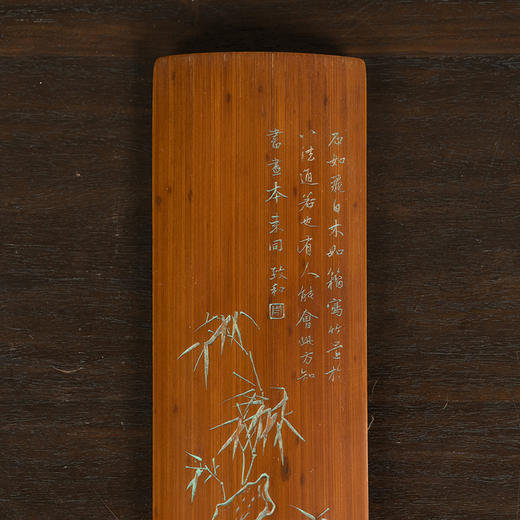 石如飛白木如籀寫竹還於
八法通若也有人能會此方知
書畫本来同 致和